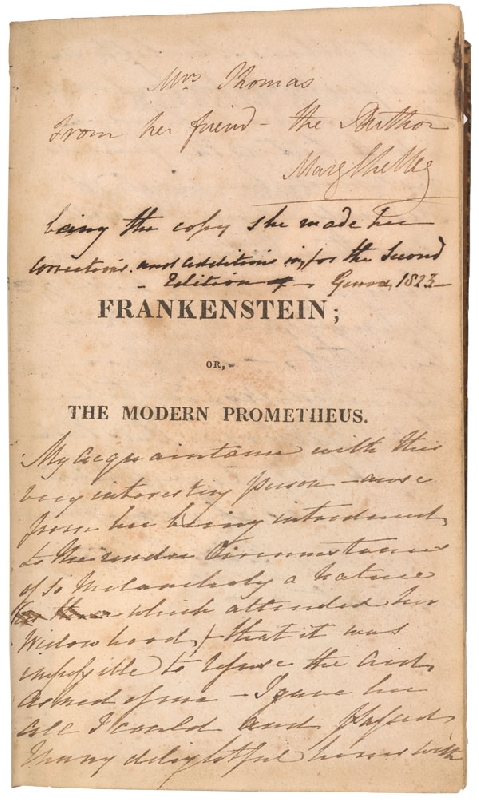 Mrs Thomas
from her friend - the Author
Mary Shelley
being the copy she made her
corrections, and additions in, for the Second
Edition - Genoa, 1823 -
FRANKENSTEIN;
OR,
THE MODERN PROMETHEUS.
My acquaintance with this
very interesting person - arose
from her being introduced
to me under Circumstances
of so Melancholy a nature
which attended her
Widowhood, & that it was
impossible to refuse the aid
asked of me - I gave her
all I could and passed
Many delightful hours with